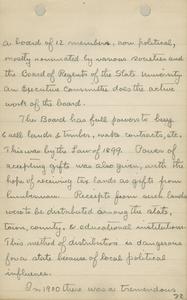 a board of 12 members, non political,
mostly nominated by various societies and
the Board of Regents of the State University.
An Executive Committee does the active
work of the Board.
The Board has full powers to buy
& sell lands & timber, make contracts, etc.
This was by the Law of 1899. Power of
accepting gifts was also given, with the
hope of receiving tax lands as gifts from
lumbermen. Receipts from such lands
were to be distributed among the state,
town, county, & educational institutions.
This method of distribution is dangerous
for a state because of local political
influence.
In 1900 there was a tremendous